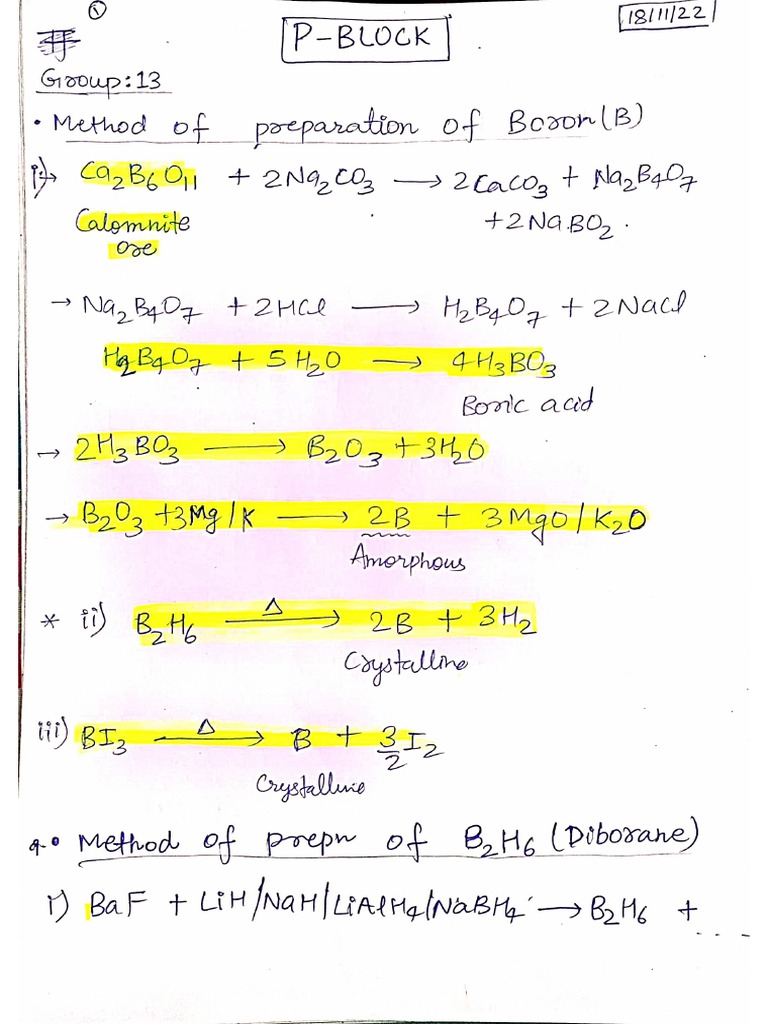 ①
18/11/22
P-BLOCK
Group:13
• Method of preparation of Boron (B)
i) → Ca₂B₆O₁₁ + 2Na₂CO₃ → 2CaCO₃ + Na₂B₄O₇
Calomnite + 2NaBO₂.
ore
→ Na₂B₄O₇ + 2HCl → H₂B₄O₇ + 2NaCl
H₂B₄O₇ + 5H₂O → 4H₃BO₃
Boric acid
→ 2H₃BO₃ → B₂O₃ + 3H₂O
→ B₂O₃ + 3Mg/K → 2B + 3MgO/K₂O
Amorphous
* ii) B₂H₆ —Δ→ 2B + 3H₂
Crystalline
iii) BI₃ —Δ→ B + 3/2 I₂
Crystalline
• Method of prepn of B₂H₆ (Diborane)
i) BaF + LiH/NaH/LiAlH₄/NaBH₄ → B₂H₆ +
- - - -